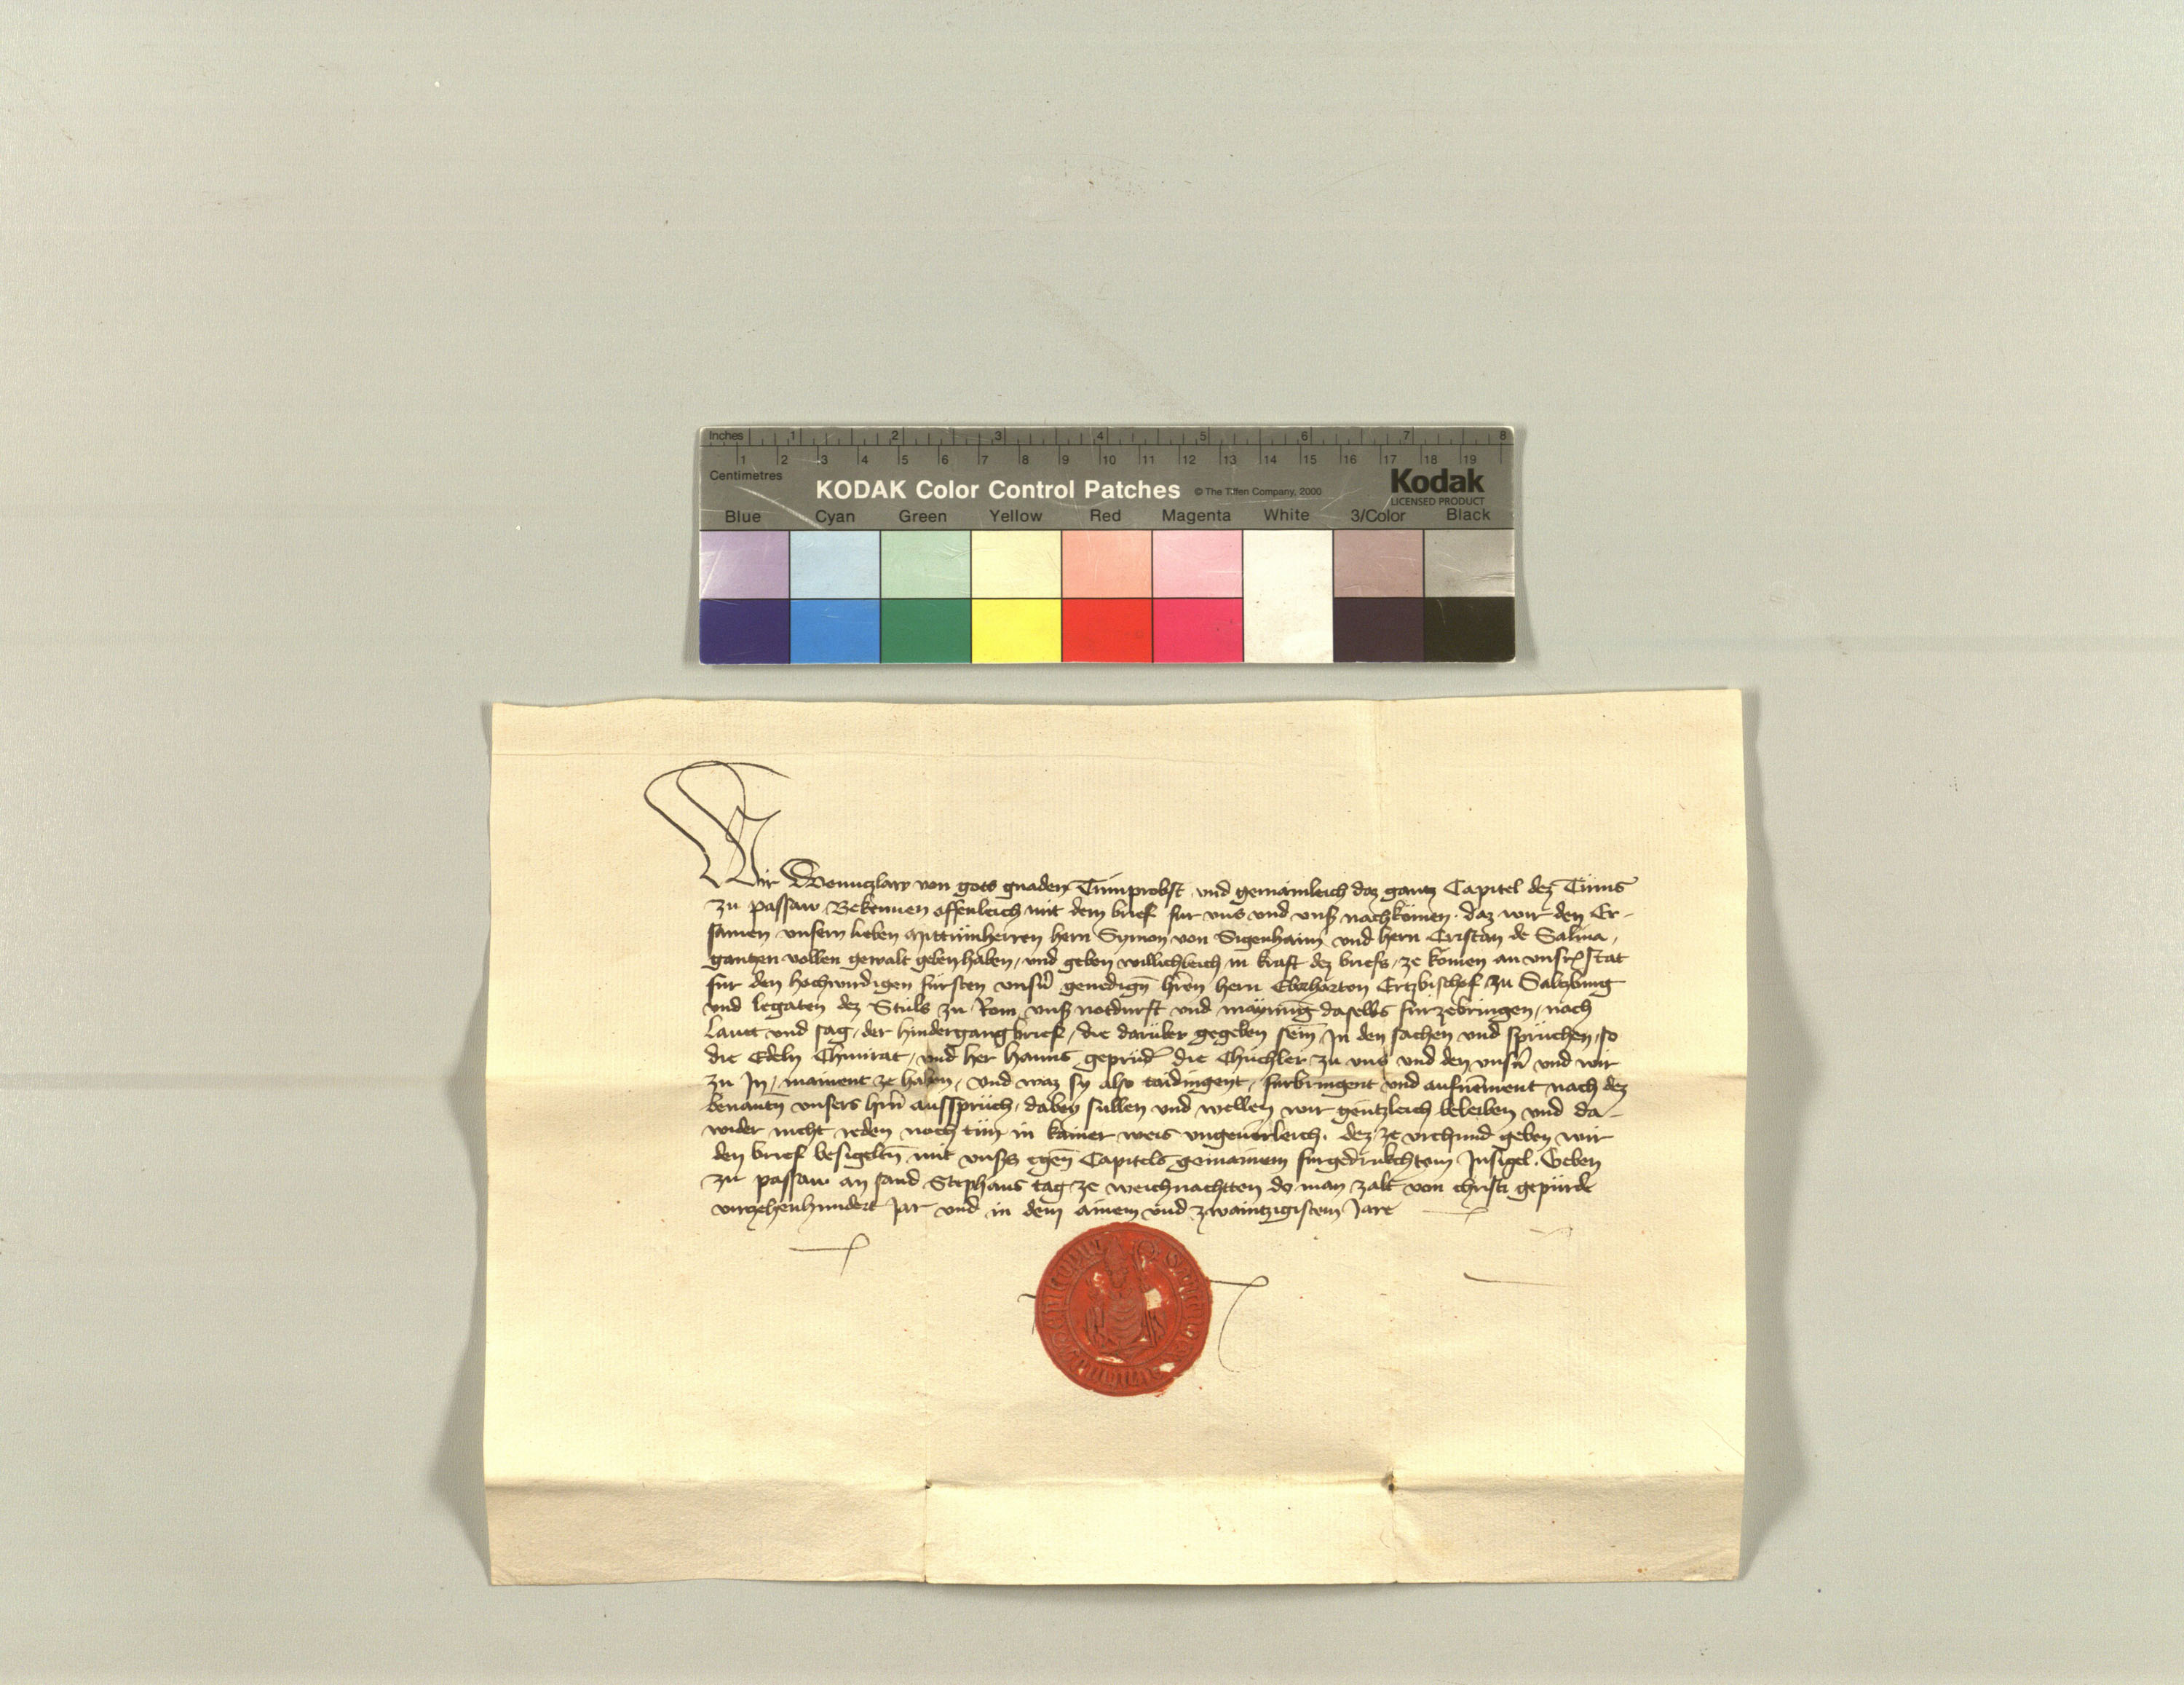 Inches 1 2 3 4 5 6 7 8
1 2 3 4 5 6 7 8 9 10 11 12 13 14 15 16 17 18 19
Centimetres
KODAK Color Control Patches © The Tiffen Company, 2000 Kodak
LICENSED PRODUCT
Blue Cyan Green Yellow Red Magenta White 3/Color Black
Wir Wenntzlaw von gots gnaden Tumprobst und gemainleich daz gantz Capitel dez Tums
zu passaw Bekennen offenleich mit dem brief fur uns und unß nachkomen daz wir den Er-
samen unsern lieben mittumherren hern Symon von Sigenhaim und hern Cristan de Salina,
gantzen vollen gewalt geben haben, und geben willichleich in kraft dez briefs, ze komen an unsrer stat
für den hochwirdigen fürsten unsern genedign hren hern Eberharten Ertzbischof zu Saltzburg
und legaten dez Stuls zu Rom unß notdurft und maynung daselbs fürzebringen, nach
lautt und sag, der hindergangbrief, die darüber gegeben sein In den sachen und sprüchen, so
die Edeln Chunrat, und her Hanns geprüder die Chuchler zu uns und den unsern und wir
zu In, mainent ze haben, und waz sy also taidingent, fürbringent und aufnement nach dez
benantn unsers hrn aussprüch, dabey süllen und wellen wir gentzleich beleiben und da-
wider nicht reden noch tün in kainer weis ungeuerleich. dez ze urchund geben wir
den brief besigeltn mit unsß egen Capitels gemainem fürgedrukchtem Insigel. Geben
zu passaw an sand Stephans tag ze weichnachtten do man zalt von christi gepürde
vierzehenhundert jar und in dem ainem und zwaintzigistem Jare